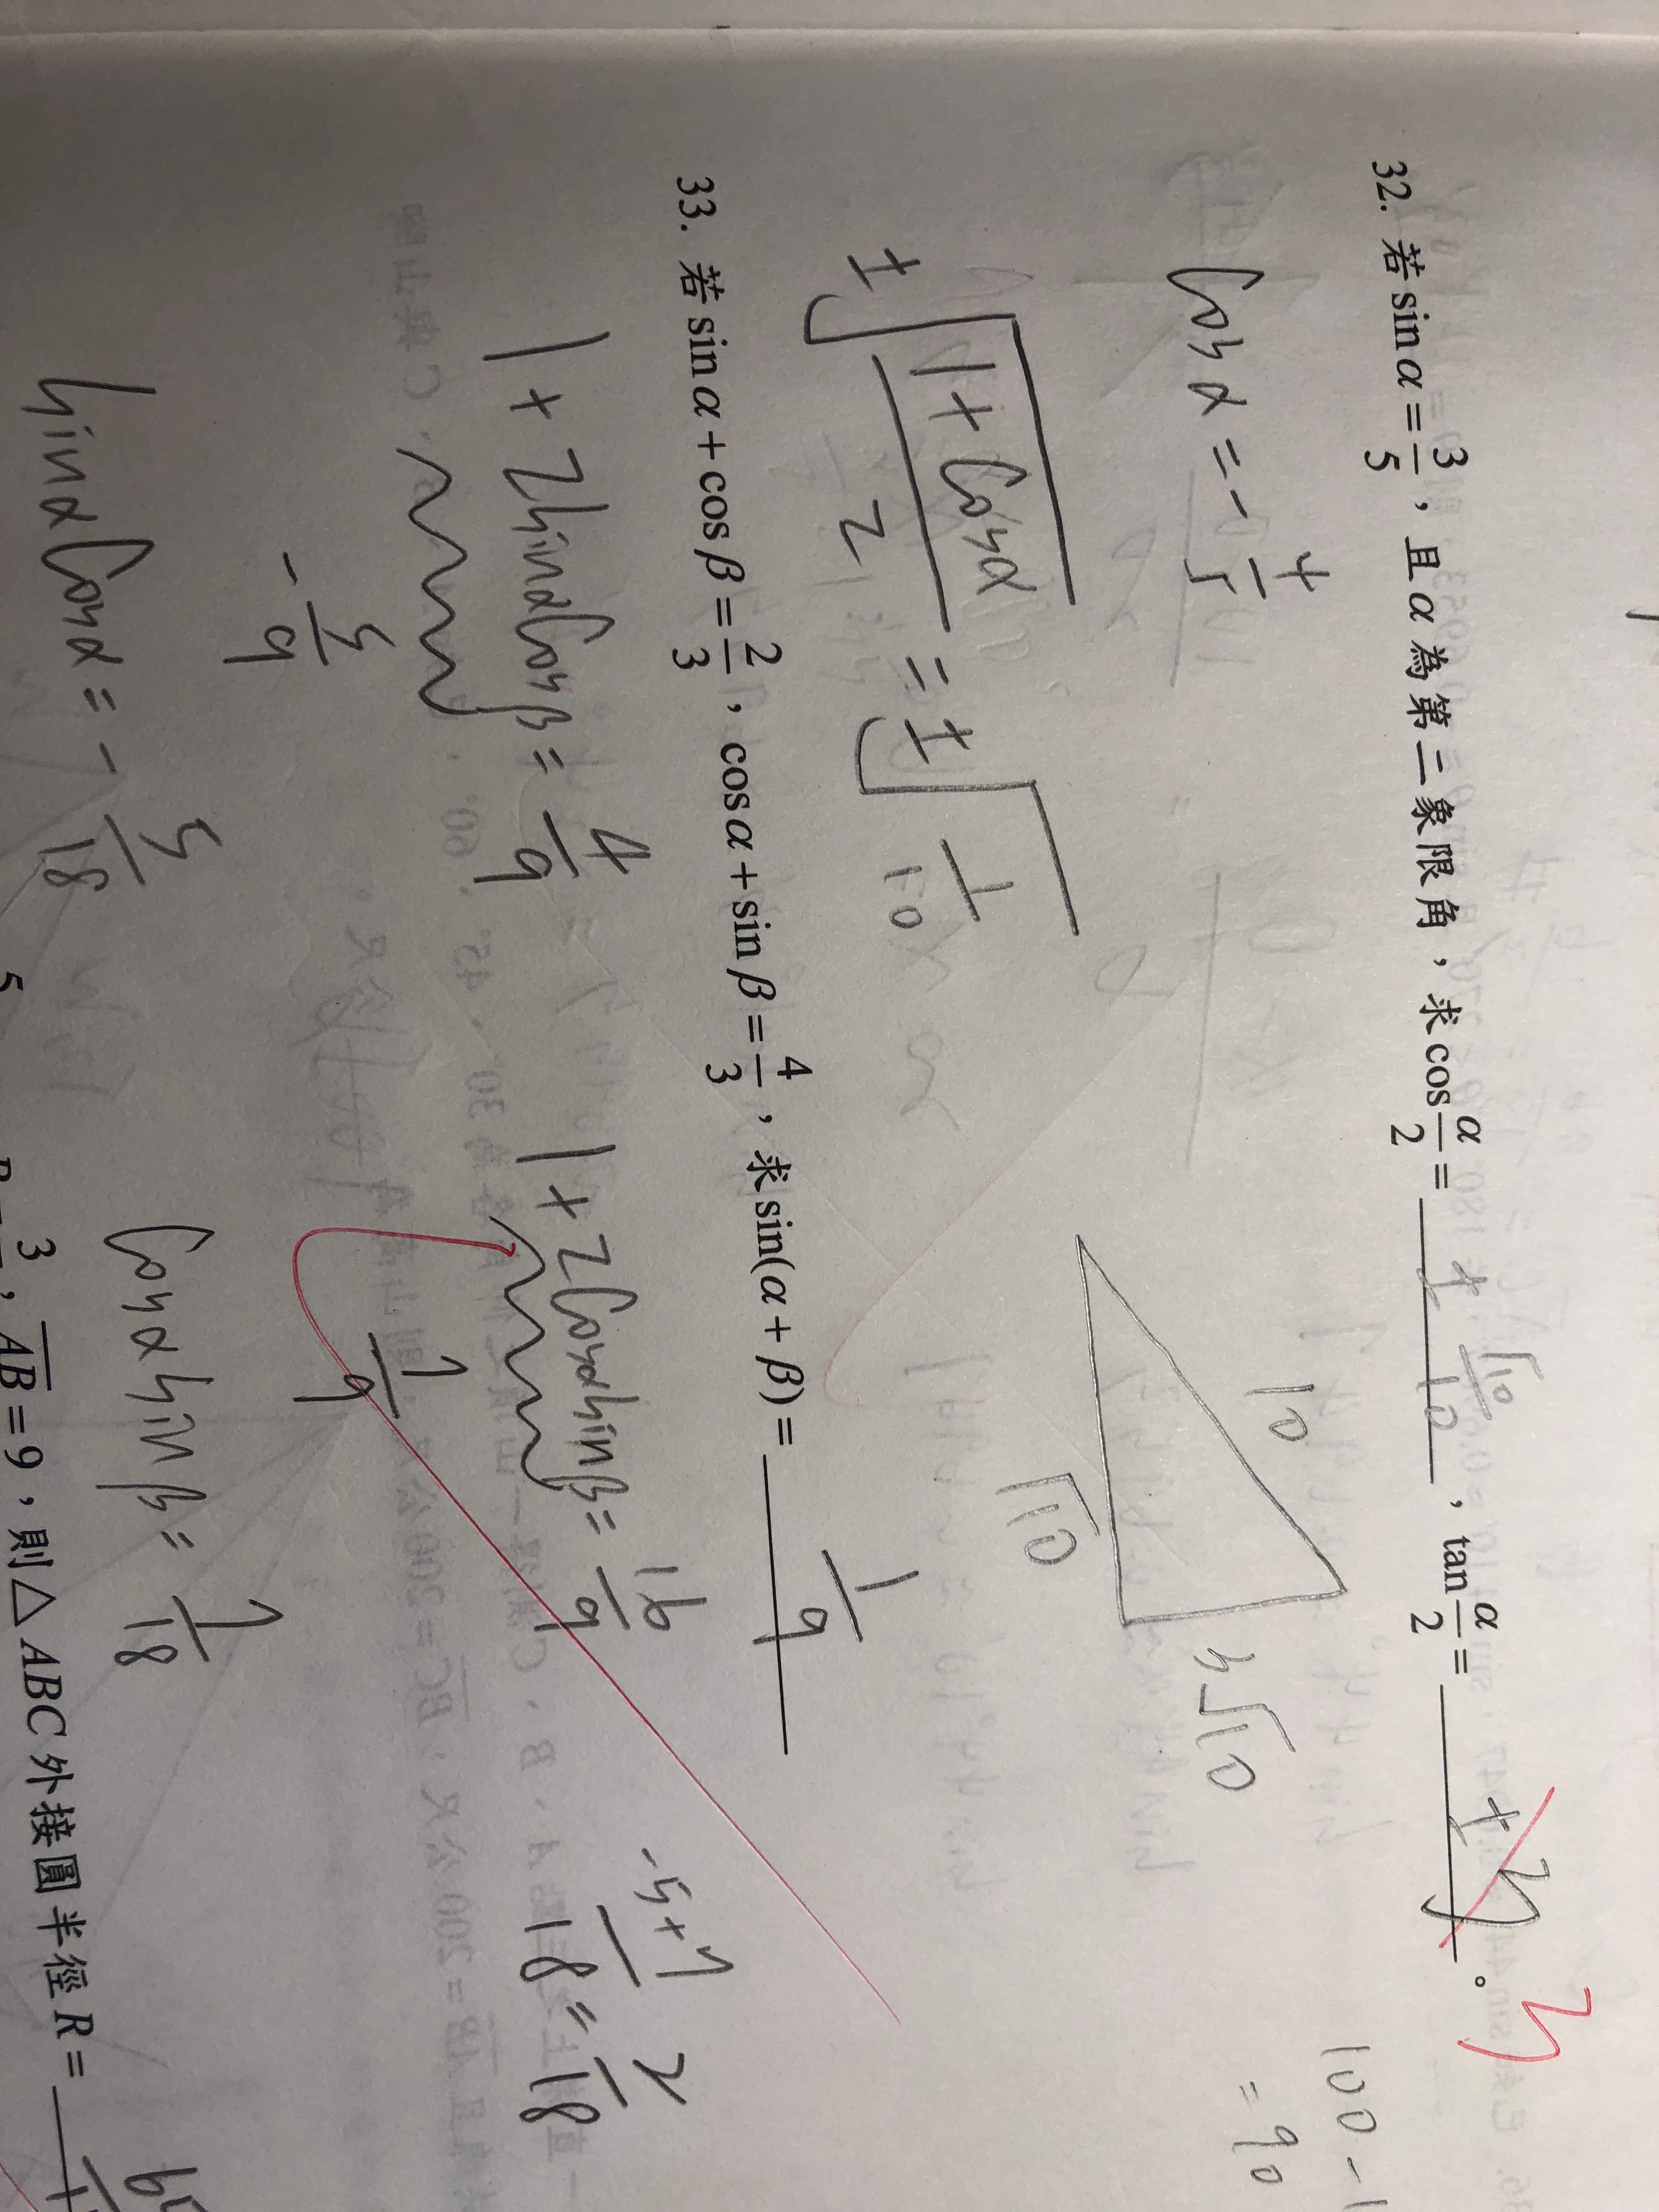 32. 若 sin α = 3/5 , 且 α 為第二象限角 , 求 cos α/2 = ± √10/10 , tan α/2 = ± 3 。 3
cos α = - 4/5
10
3√10
√10
100 -
= 90
± √(1 + cos α / 2) = ± √(1/10)
33. 若 sin α + cos β = 2/3 , cos α + sin β = 4/3 , 求 sin(α + β) = 1/9
1 + 2 sin α cos β = 4/9
1 + 2 cos α sin β = 16/9
-5+7/18 = 2/18
- 5/9
7/9
sin α cos α = - 5/18
cos α sin β = 7/18
3 , AB = 9 , 則 △ ABC 外接圓半徑 R =